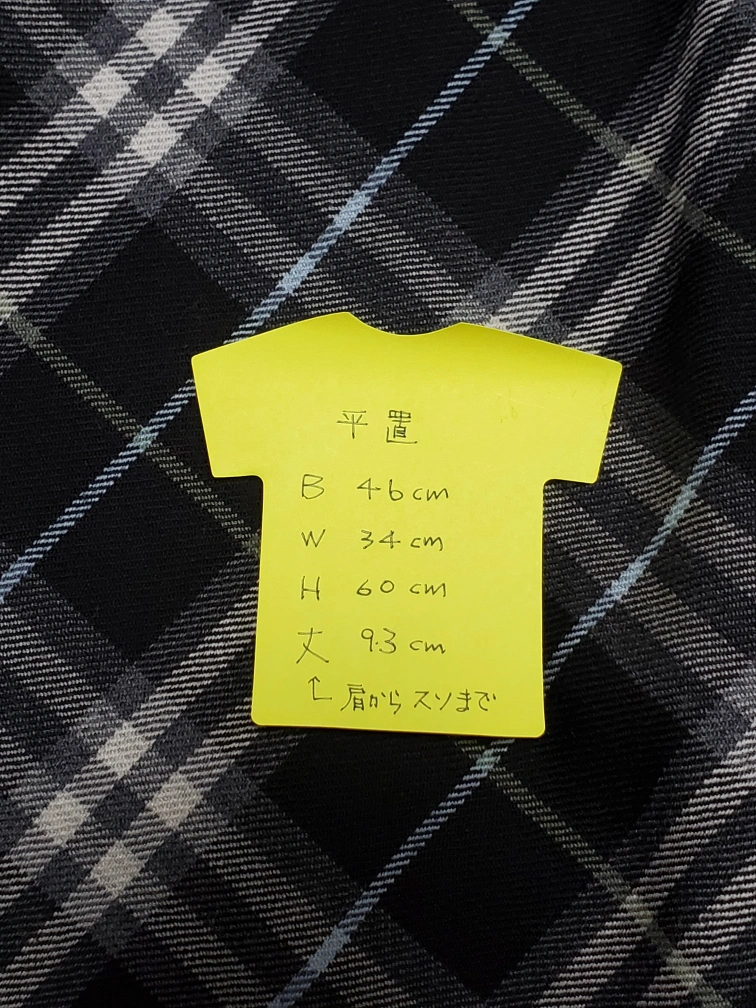 平置
B 46cm
W 34cm
H 60cm
丈 93cm
↑肩からスソまで